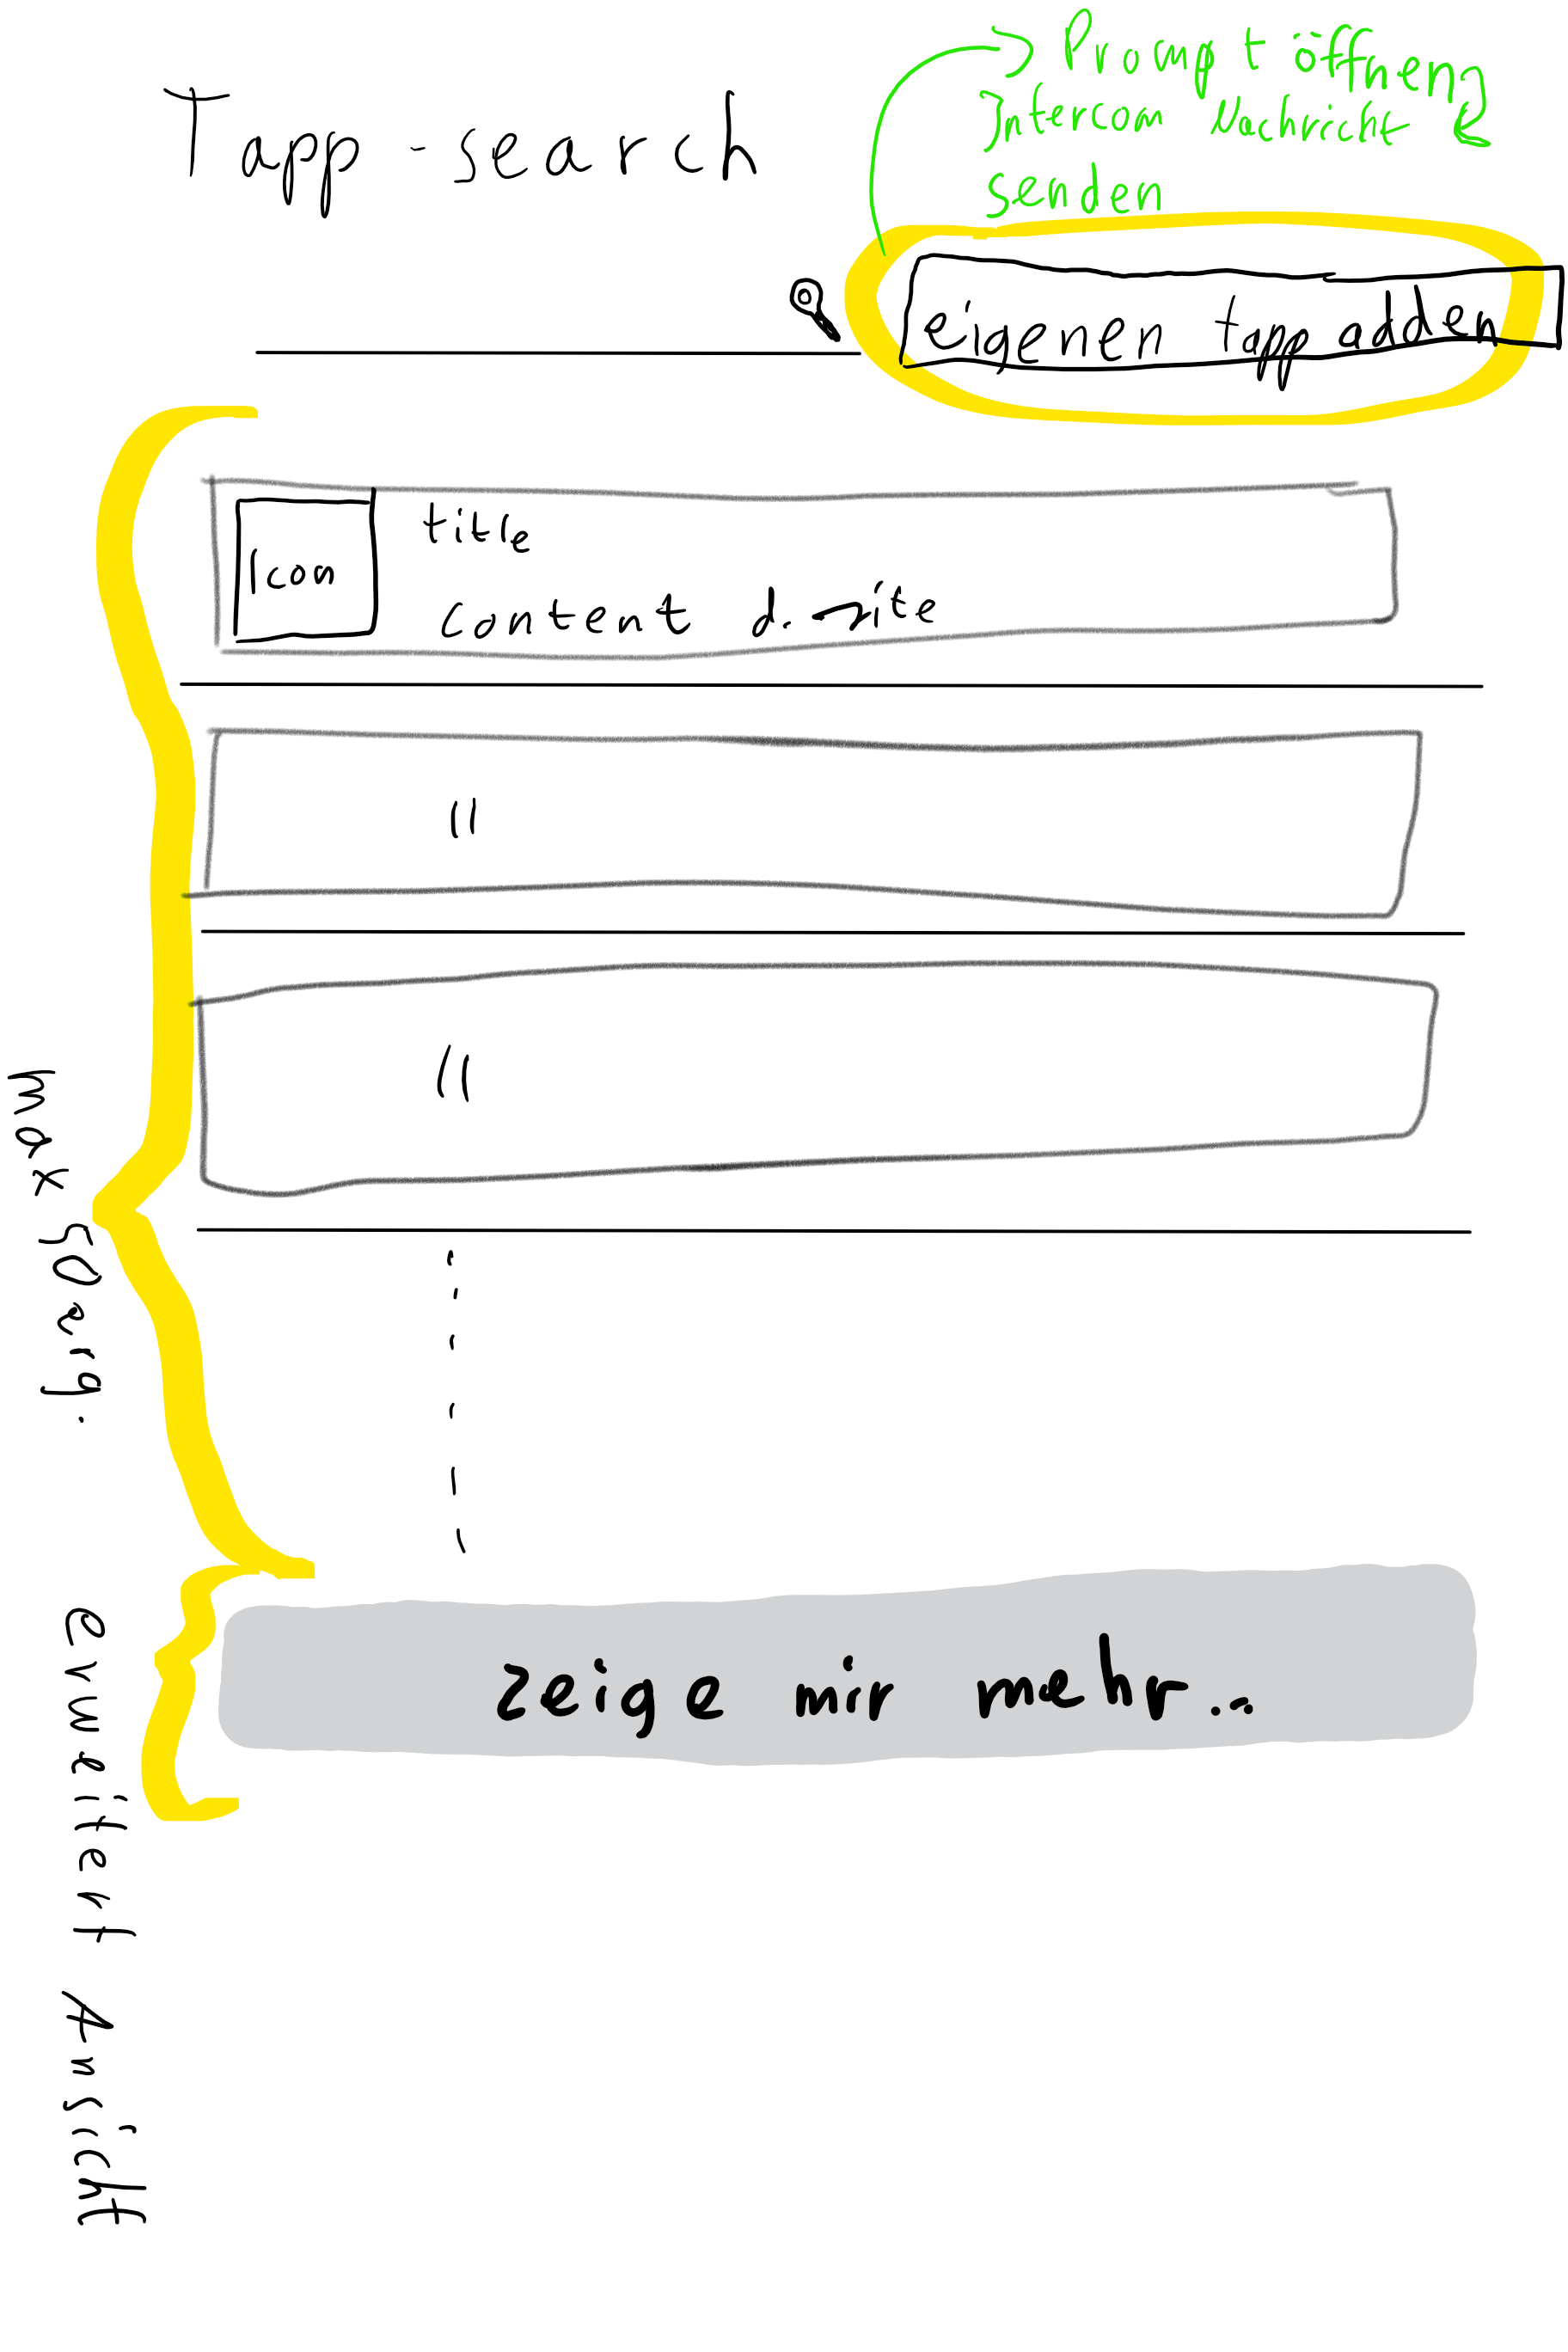 Tapp-search
> Prompt öffnen &
Intercom Nachricht
senden
eigenen tapp adden
Icon
title
content d. site
"
"
max 50 arg.
zeige mir mehr...
erweitert Ansicht